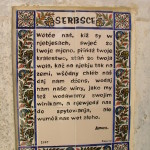 SERBSCE
Wótče naš, kiž ty w
njebjesach, swjeć so
twoje mjeno, přińdź twoje
kralestwo, stań so twoja
wola, kaž na njebju tak na
zemi, wšědny chlěb naš
daj nam dźens, wodaj
nam naše winy, jako my
tež wodawamy swojim
winikam, a njewjedź nas
do spytowanja, ale
wumóž nas wot złeho.
Amen.